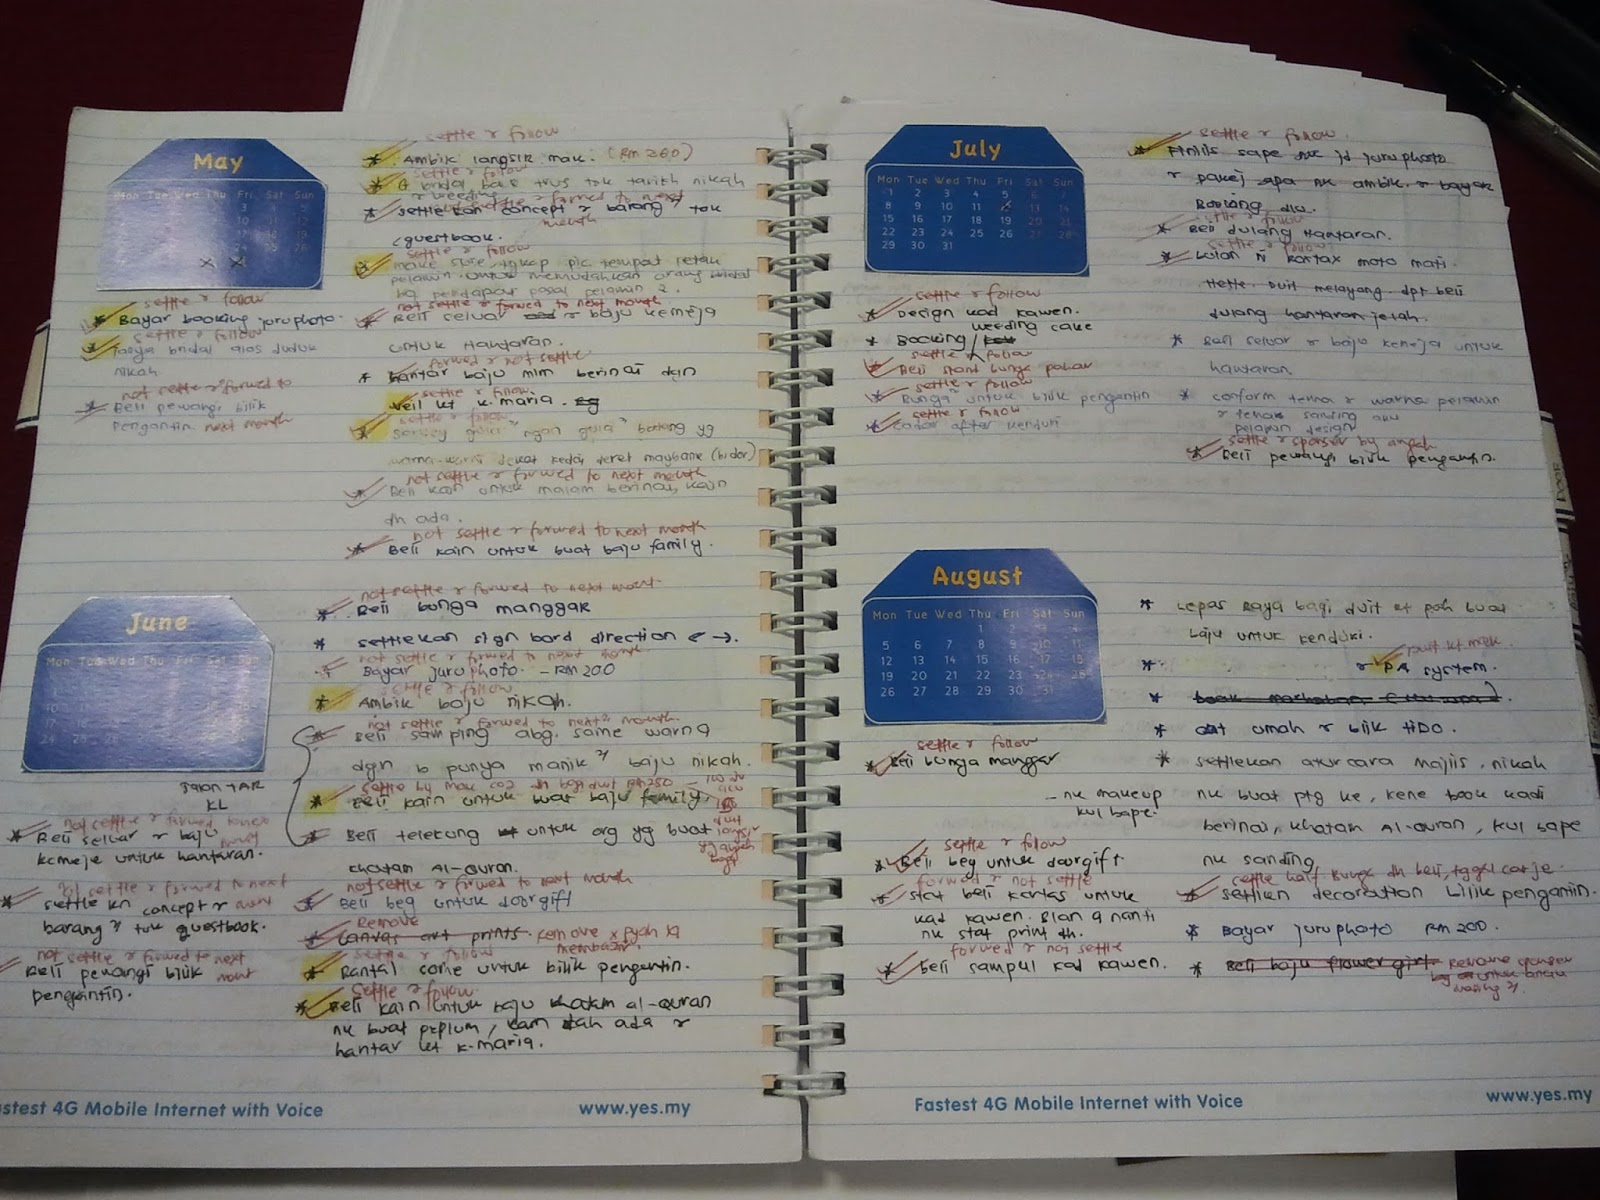 May
Mon Tue Wed Thu Fri Sat Sun
3
10 11
17 18 19
24 25 26
settle & follow
* Bayar booking juruphoto.
settle & follow
* Tanya bridal alas duduk
nikah
not settle & forwed to
* Beli pewangi bilik
pengantin next month
settle & follow
* Ambik langsir mak. (RM 260)
settle & follow
tarikh nikah
* settlekan concept & barang² tok
guestbook.
settle & follow
make sure, tgkap pic tempat letak
pelamin untuk memudahkan orang bridal
bg pendapat pasal pelamin 2.
not settle & forwed to next month
* Beli seluar & baju kemeja
untuk Hantaran.
forwed & not settle
* hantar baju mlm berinai dgn
settle & follow
veil kt k.maria.
settle & follow
warna-warni dekat kedai deret maybank (bidor)
not settle & forwed to next month
* Beli kain untuk malam berinai, kain
dh ada.
not settle & forwed to next month
* Beli kain untuk buat baju family.
June
Mon Tue Wed Thu Fri Sat Sun
Jalan TAR
KL
not settle & forwed to next
* Beli seluar & baju
kemeje untuk hantaran.
not settle & forwed to next
* settle kn concept &
barang² tuk guestbook.
not settle & forwed to next
* Beli pewangi bilik
pengantin.
not settle & forwed to next mont.
* Beli bunga manggar
* settlekan sign bord direction ← →.
not settle & forwed to next month
* Bayar juruphoto. - RM 200
settle & follow
* Ambik baju nikah.
not settle & forwed to next month.
* Beli samping abg, same warna
dgn b punya manik² baju nikah.
settle by mak coz dh bagi duit RM250
* Beli kain untuk buat baju family.
* Beli telekung untuk org yg buat
khatam Al-Quran.
not settle & forwed to next month
* Beli beg untuk doorgift
Remove
* Canvas art prints.
settle & follow
* Rantal come untuk bilik pengantin.
settle & follow
* Beli kain untuk baju khatam al-quran
nk buat peplum, kain dah ada &
hantar kt k-maria.
Fastest 4G Mobile Internet with Voice
www.yes.my
July
Mon Tue Wed Thu Fri Sat Sun
1 2 3 4 5 6 7
8 9 10 11 12 13 14
15 16 17 18 19 20 21
22 23 24 25 26 27 28
29 30 31
settle & follow
* Design kad kawen.
weeding cake
* Booking /
settle & follow
* Beli stand bunga pahar
settle & follow
* Bunga untuk bilik pengantin
settle & follow
* Cater after kenduri
settle & follow.
* Finilis sape nk jd juruphoto
& pakej apa nk ambik & bayar
Booking dia.
settle & follow
* Beli dulang Hantaran.
settle & follow
* Bulan ni kontax moto mati.
Hehe. Duit melayang. dpt beli
dulang hantaran jelah.
* Beli seluar & baju kemeja untuk
hantaran.
* conform tema & warna pelamin
& tengk
pelamin design
settle & sponser by angah
* Beli pewangi bilik pengantin.
August
Mon Tue Wed Thu Fri Sat Sun
1 2 3 4
5 6 7 8 9 10 11
12 13 14 15 16 17 18
19 20 21 22 23 24 25
26 27 28 29 30 31
settle & follow
* Beli bunga manggar
- nk makeup
kul bape.
settle & follow
* Beli beg untuk doorgift.
forwed & not settle
* start beli kertas untuk
kad kawen. Blan 9 nanti
nk stat print dh.
forwed & not settle
* beli sampul kad kawen.
* Lepas Raya bagi duit kt pah buat
laju untuk kenduri.
* & PA system.
* cat umah & blik HDO.
* settlekan aturcara majlis, nikah
nk buat ptg ke, kene book kadi
berinai, khatam Al-Quran, kul bape
nk sanding
settle half Bunge dh beli, tggl cat je.
* setlkan decoration bilik pengantin.
* Bayar juruphoto RM 200.
* Beli baju flower girl.
Fastest 4G Mobile Internet with Voice
www.yes.my